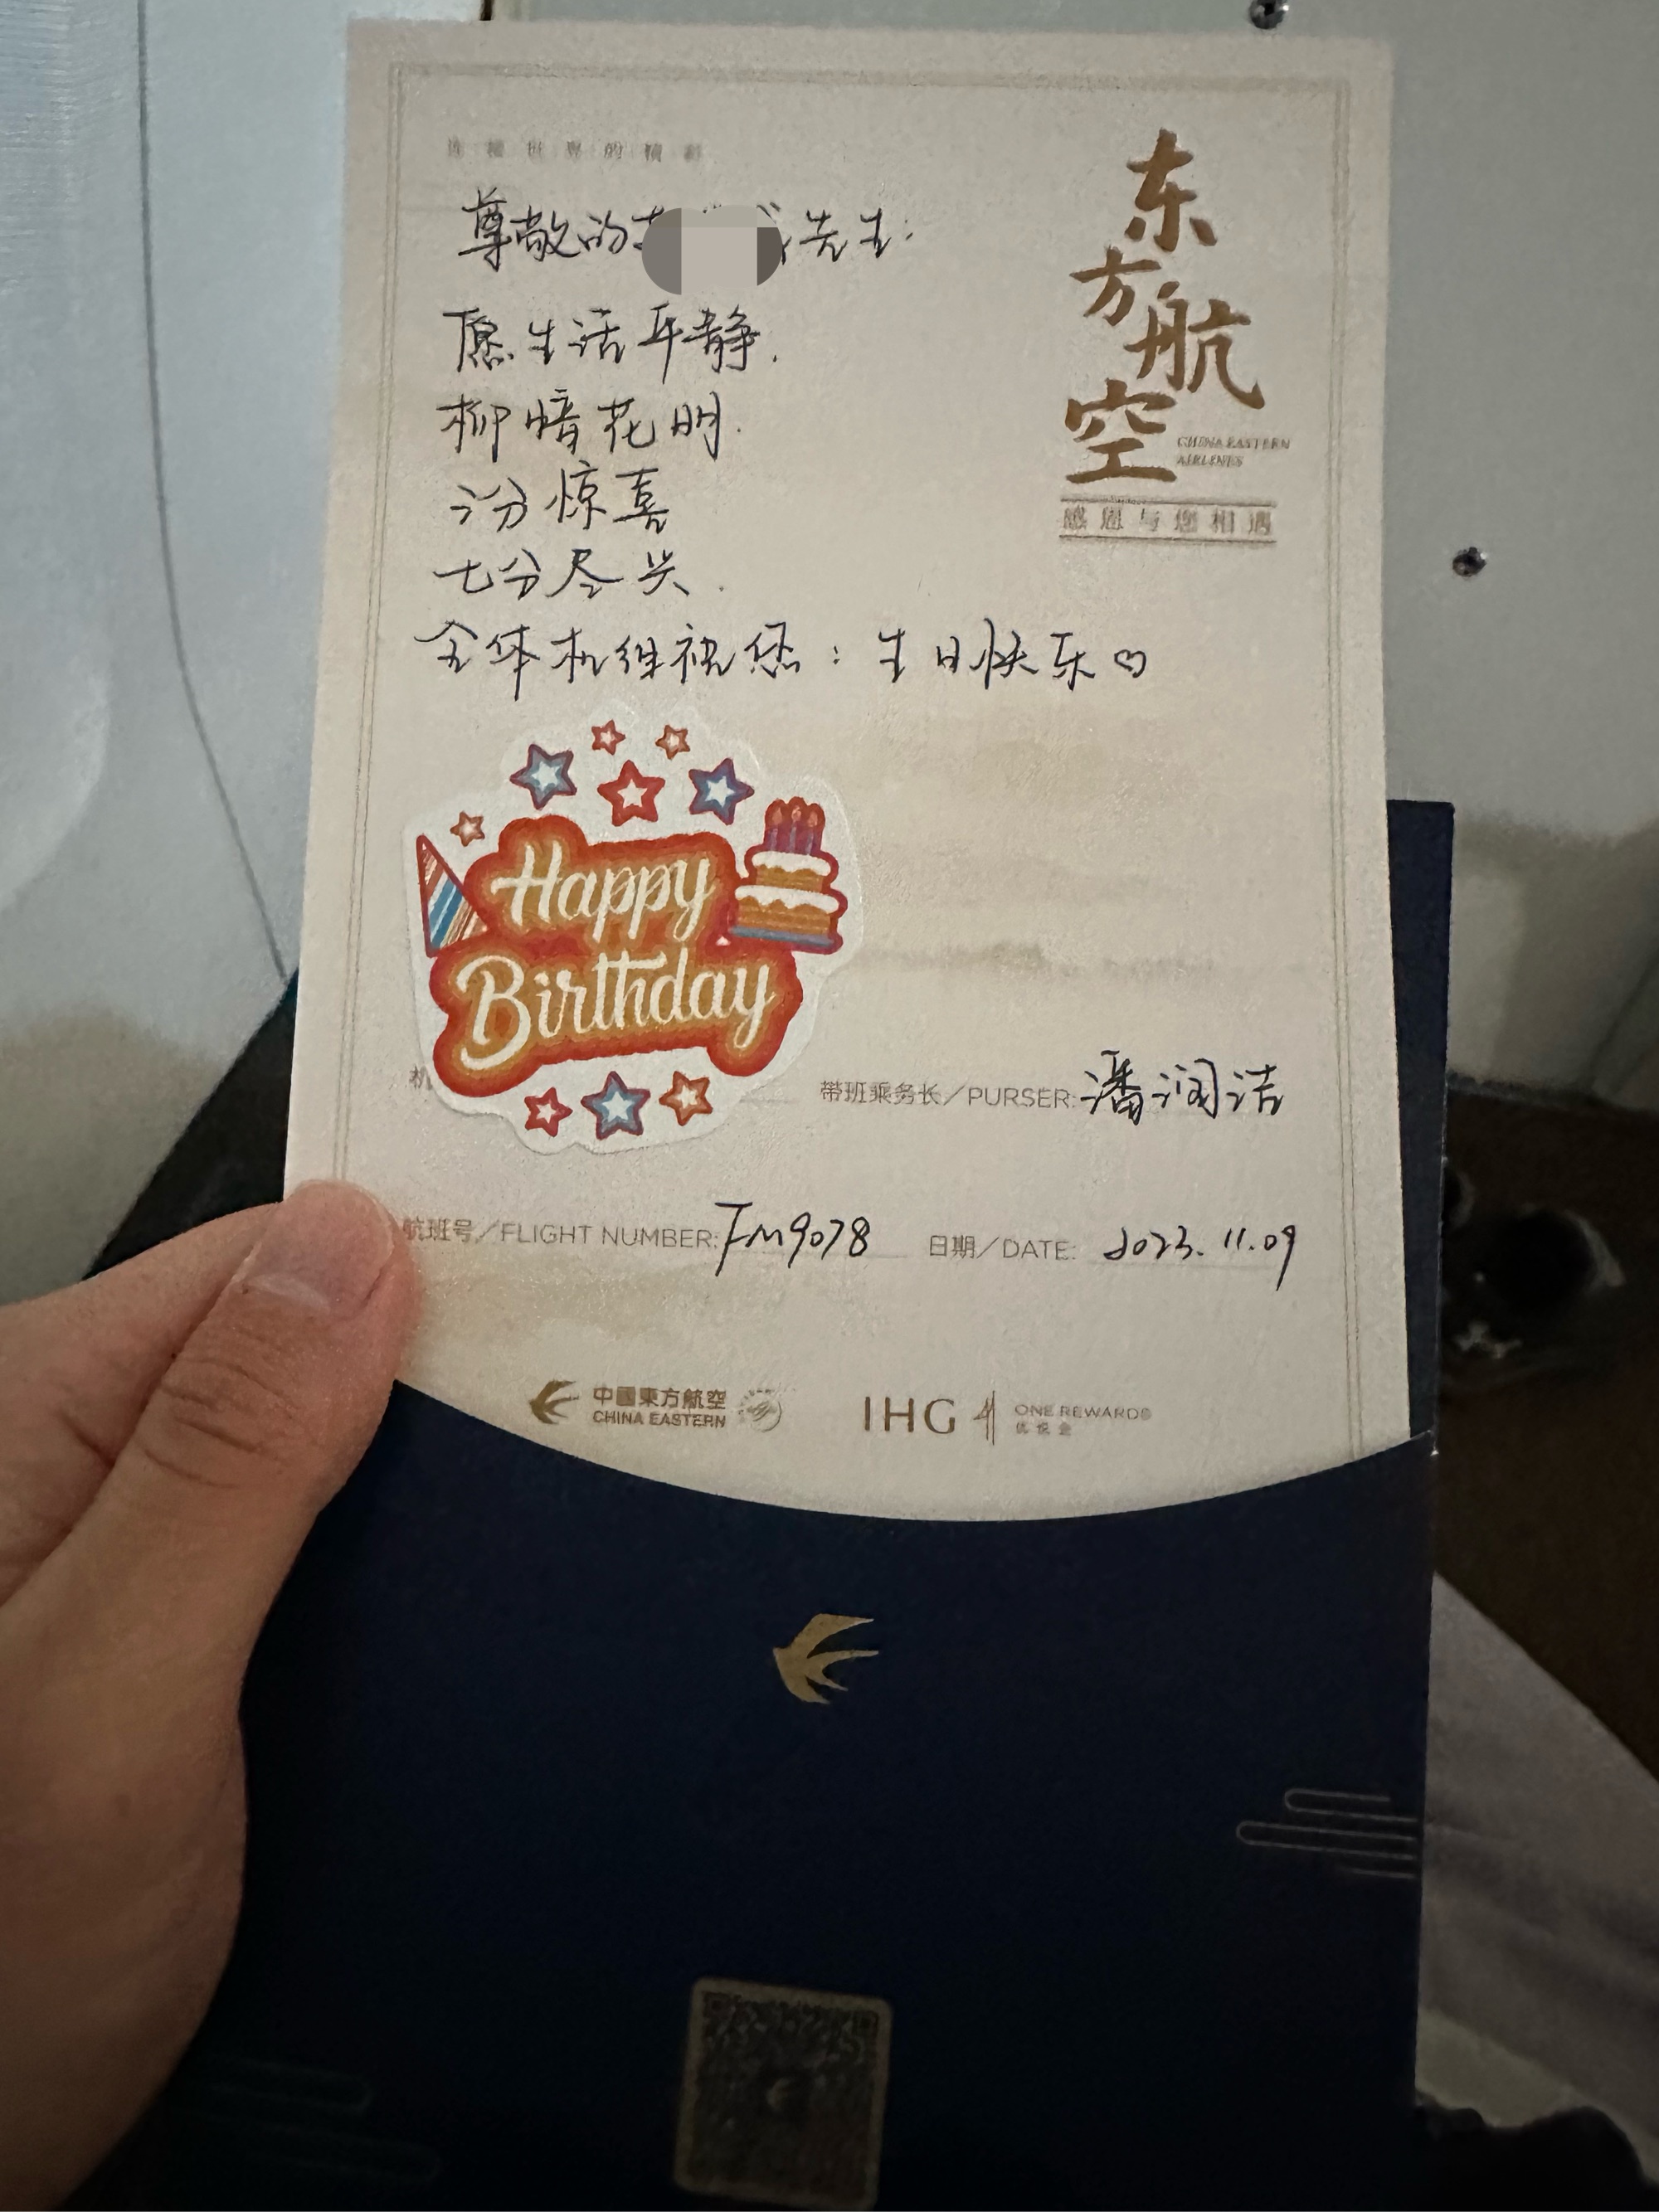 连接世界的精彩
东方航空
CHINA EASTERN
AIRLINES
感恩与您相遇
尊敬的 先生:
愿生活平静.
柳暗花明.
三分惊喜
七分尽兴.
全体机组祝您:生日快乐♡
Happy
Birthday
机
带班乘务长/PURSER:潘润洁
航班号/FLIGHT NUMBER:FM9078 日期/DATE: 2023.11.09
中國東方航空
CHINA EASTERN
IHG ONE REWARDS
优悦会